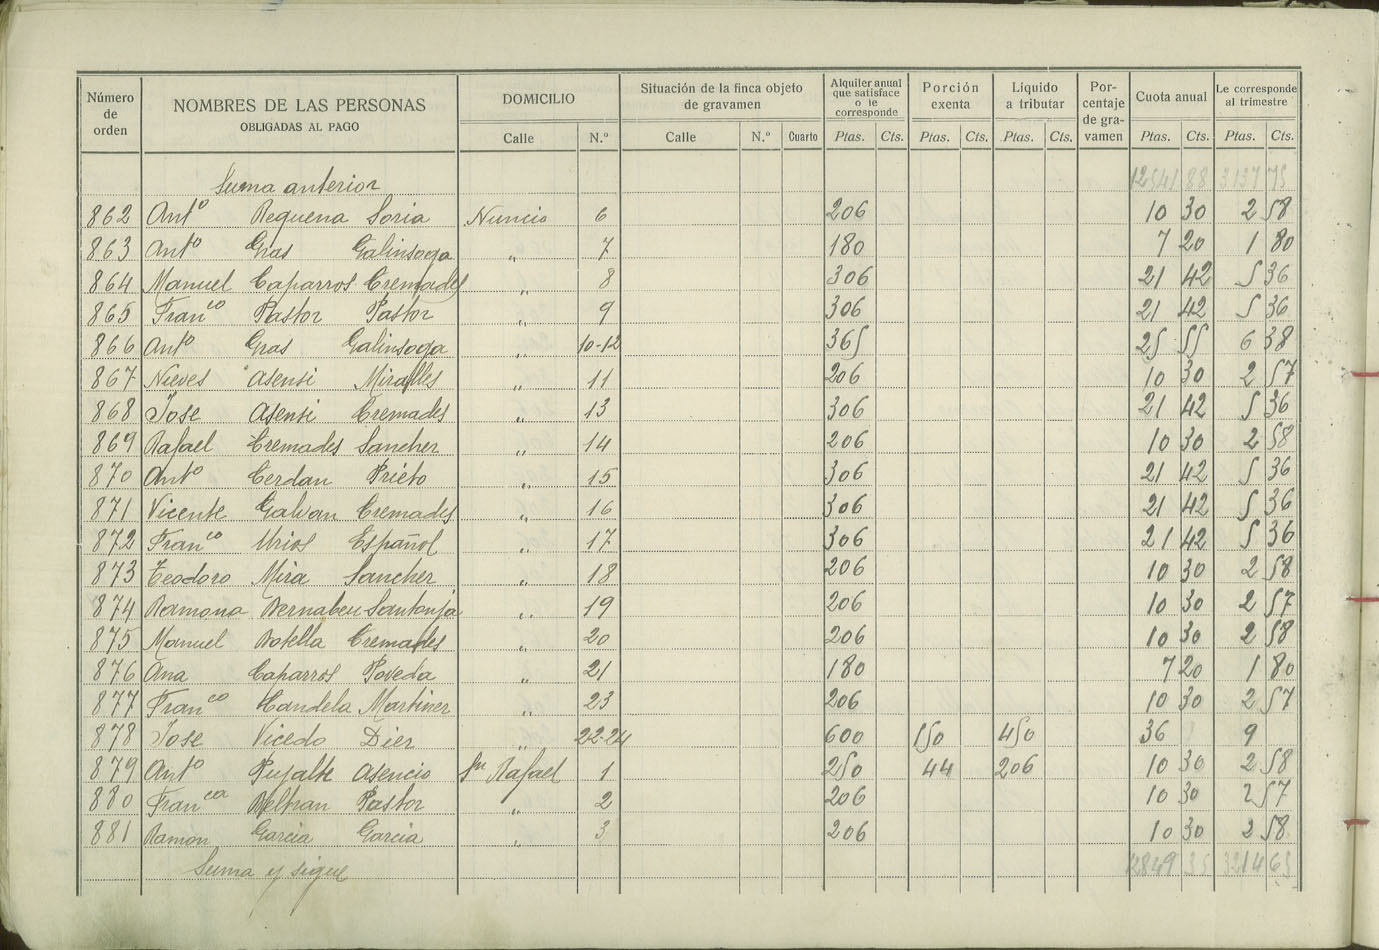 Número de orden NOMBRES DE LAS PERSONAS OBLIGADAS AL PAGO DOMICILIO Situación de la finca objeto de gravamen Alquiler anual que satisface o le corresponde Porción exenta Líquido a tributar Por-centaje de gra-vamen Cuota anual Le corresponde al trimestre
Calle N.º Calle N.º Cuarto Ptas. Cts. Ptas. Cts. Ptas. Cts. Ptas. Cts. Ptas. Cts.
Suma anterior 12541 88 3137 75
862 Antº Requena Soria Nuncio 6 206 10 30 2 58
863 Antº Gras Galinsoga " 7 180 7 20 1 80
864 Manuel Caparros Cremades " 8 306 21 42 5 36
865 Franco Pastor Pastor " 9 306 21 42 5 36
866 Antº Gras Galinsoga " 10-12 365 25 55 6 38
867 Nieves Asensi Miralles " 11 206 10 30 2 57
868 Jose Asensi Cremades " 13 306 21 42 5 36
869 Rafael Cremades Sanchez " 14 206 10 30 2 58
870 Antº Cerdan Prieto " 15 306 21 42 5 36
871 Vicente Galvan Cremades " 16 306 21 42 5 36
872 Franco Urios Español " 17 306 21 42 5 36
873 Teodoro Mira Sanchez " 18 206 10 30 2 58
874 Ramona Bernabeu Santonja " 19 206 10 30 2 57
875 Manuel Botella Cremades " 20 206 10 30 2 58
876 Ana Caparros Poveda " 21 180 7 20 1 80
877 Franco Candela Martinez " 23 206 10 30 2 57
878 Jose Vicedo Diez " 22-24 600 150 450 36 9
879 Antº Pujalte Asencio Sn Rafael 1 250 44 206 10 30 2 58
880 Franca Beltran Pastor " 2 206 10 30 2 57
881 Ramon Garcia Garcia " 3 206 10 30 2 58
Suma y sigue 12849 35 3214 63